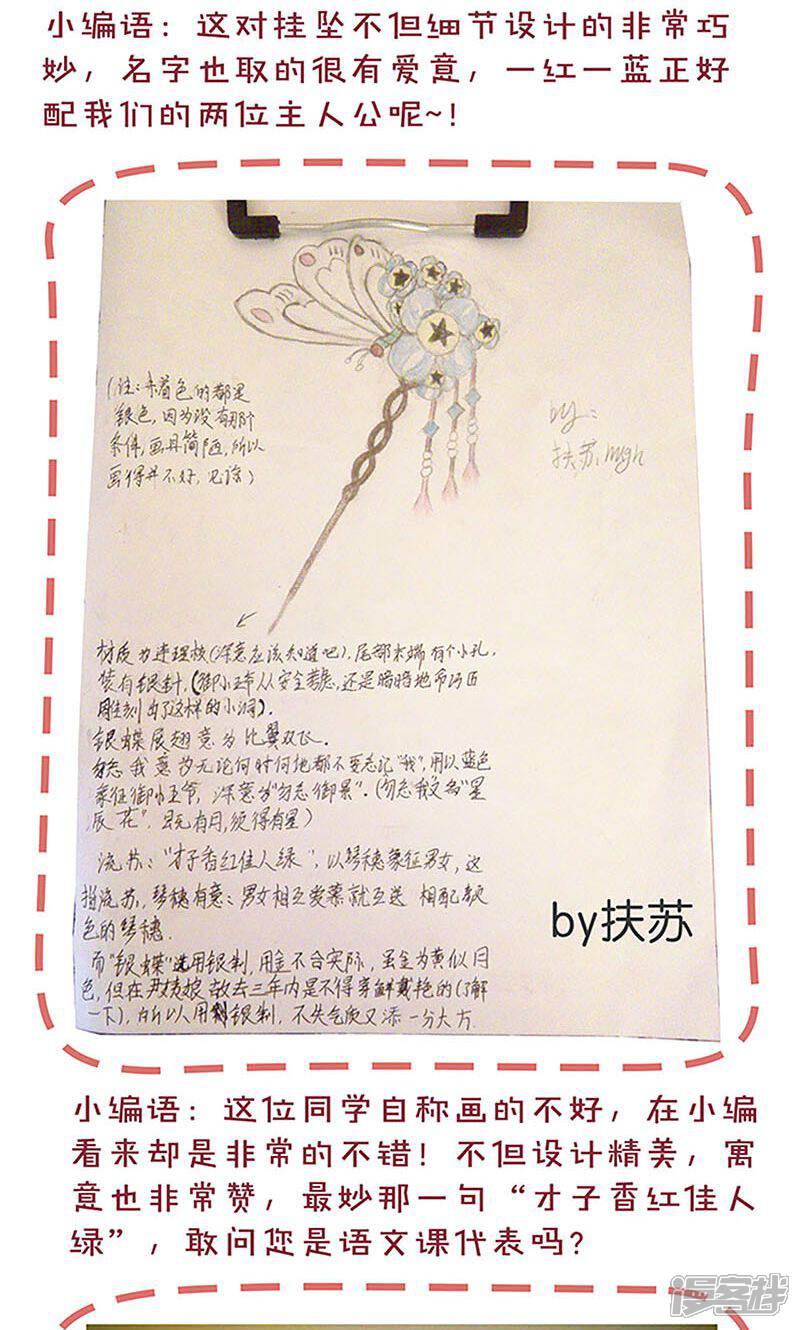 小编语：这对挂坠不但细节设计的非常巧
妙，名字也取的很有爱意，一红一蓝正好
配我们的两位主人公呢~！
（注：未着色的都是
银色，因为没有那个
条件，画具简陋，所以
画得并不好，见谅）
by：
扶苏.mgh
材质为连理枝（深意应该知道吧），尾部末端有个小孔，
装有银针，（御小王爷从安全考虑，还是暗暗地
雕刻出了这样的小洞）．
银蝶展翅意为比翼双飞．
勿忘我意为无论何时何地都不要忘记“我”，用以蓝色
象征御小王爷，深意为“勿忘御景”．（勿忘我又名“星
辰花”．既有月，须得有星）
流苏：“才子香红佳人绿”，以琴穗象征男女，这
指流苏，琴穗有意：男女相互爱慕就互送 相配颜
色的琴穗．
而“银蝶”选用银制，用金不合实际，虽金为黄似月
色，但在尹姑娘故去三年内是不得穿鲜戴艳的（了解
一下），所以用银制，不失气质又添一分大方
by扶苏
小编语：这位同学自称画的不好，在小编
看来却是非常的不错！不但设计精美，寓
意也非常赞，最妙那一句“才子香红佳人
绿”，敢问您是语文课代表吗？
漫客栈